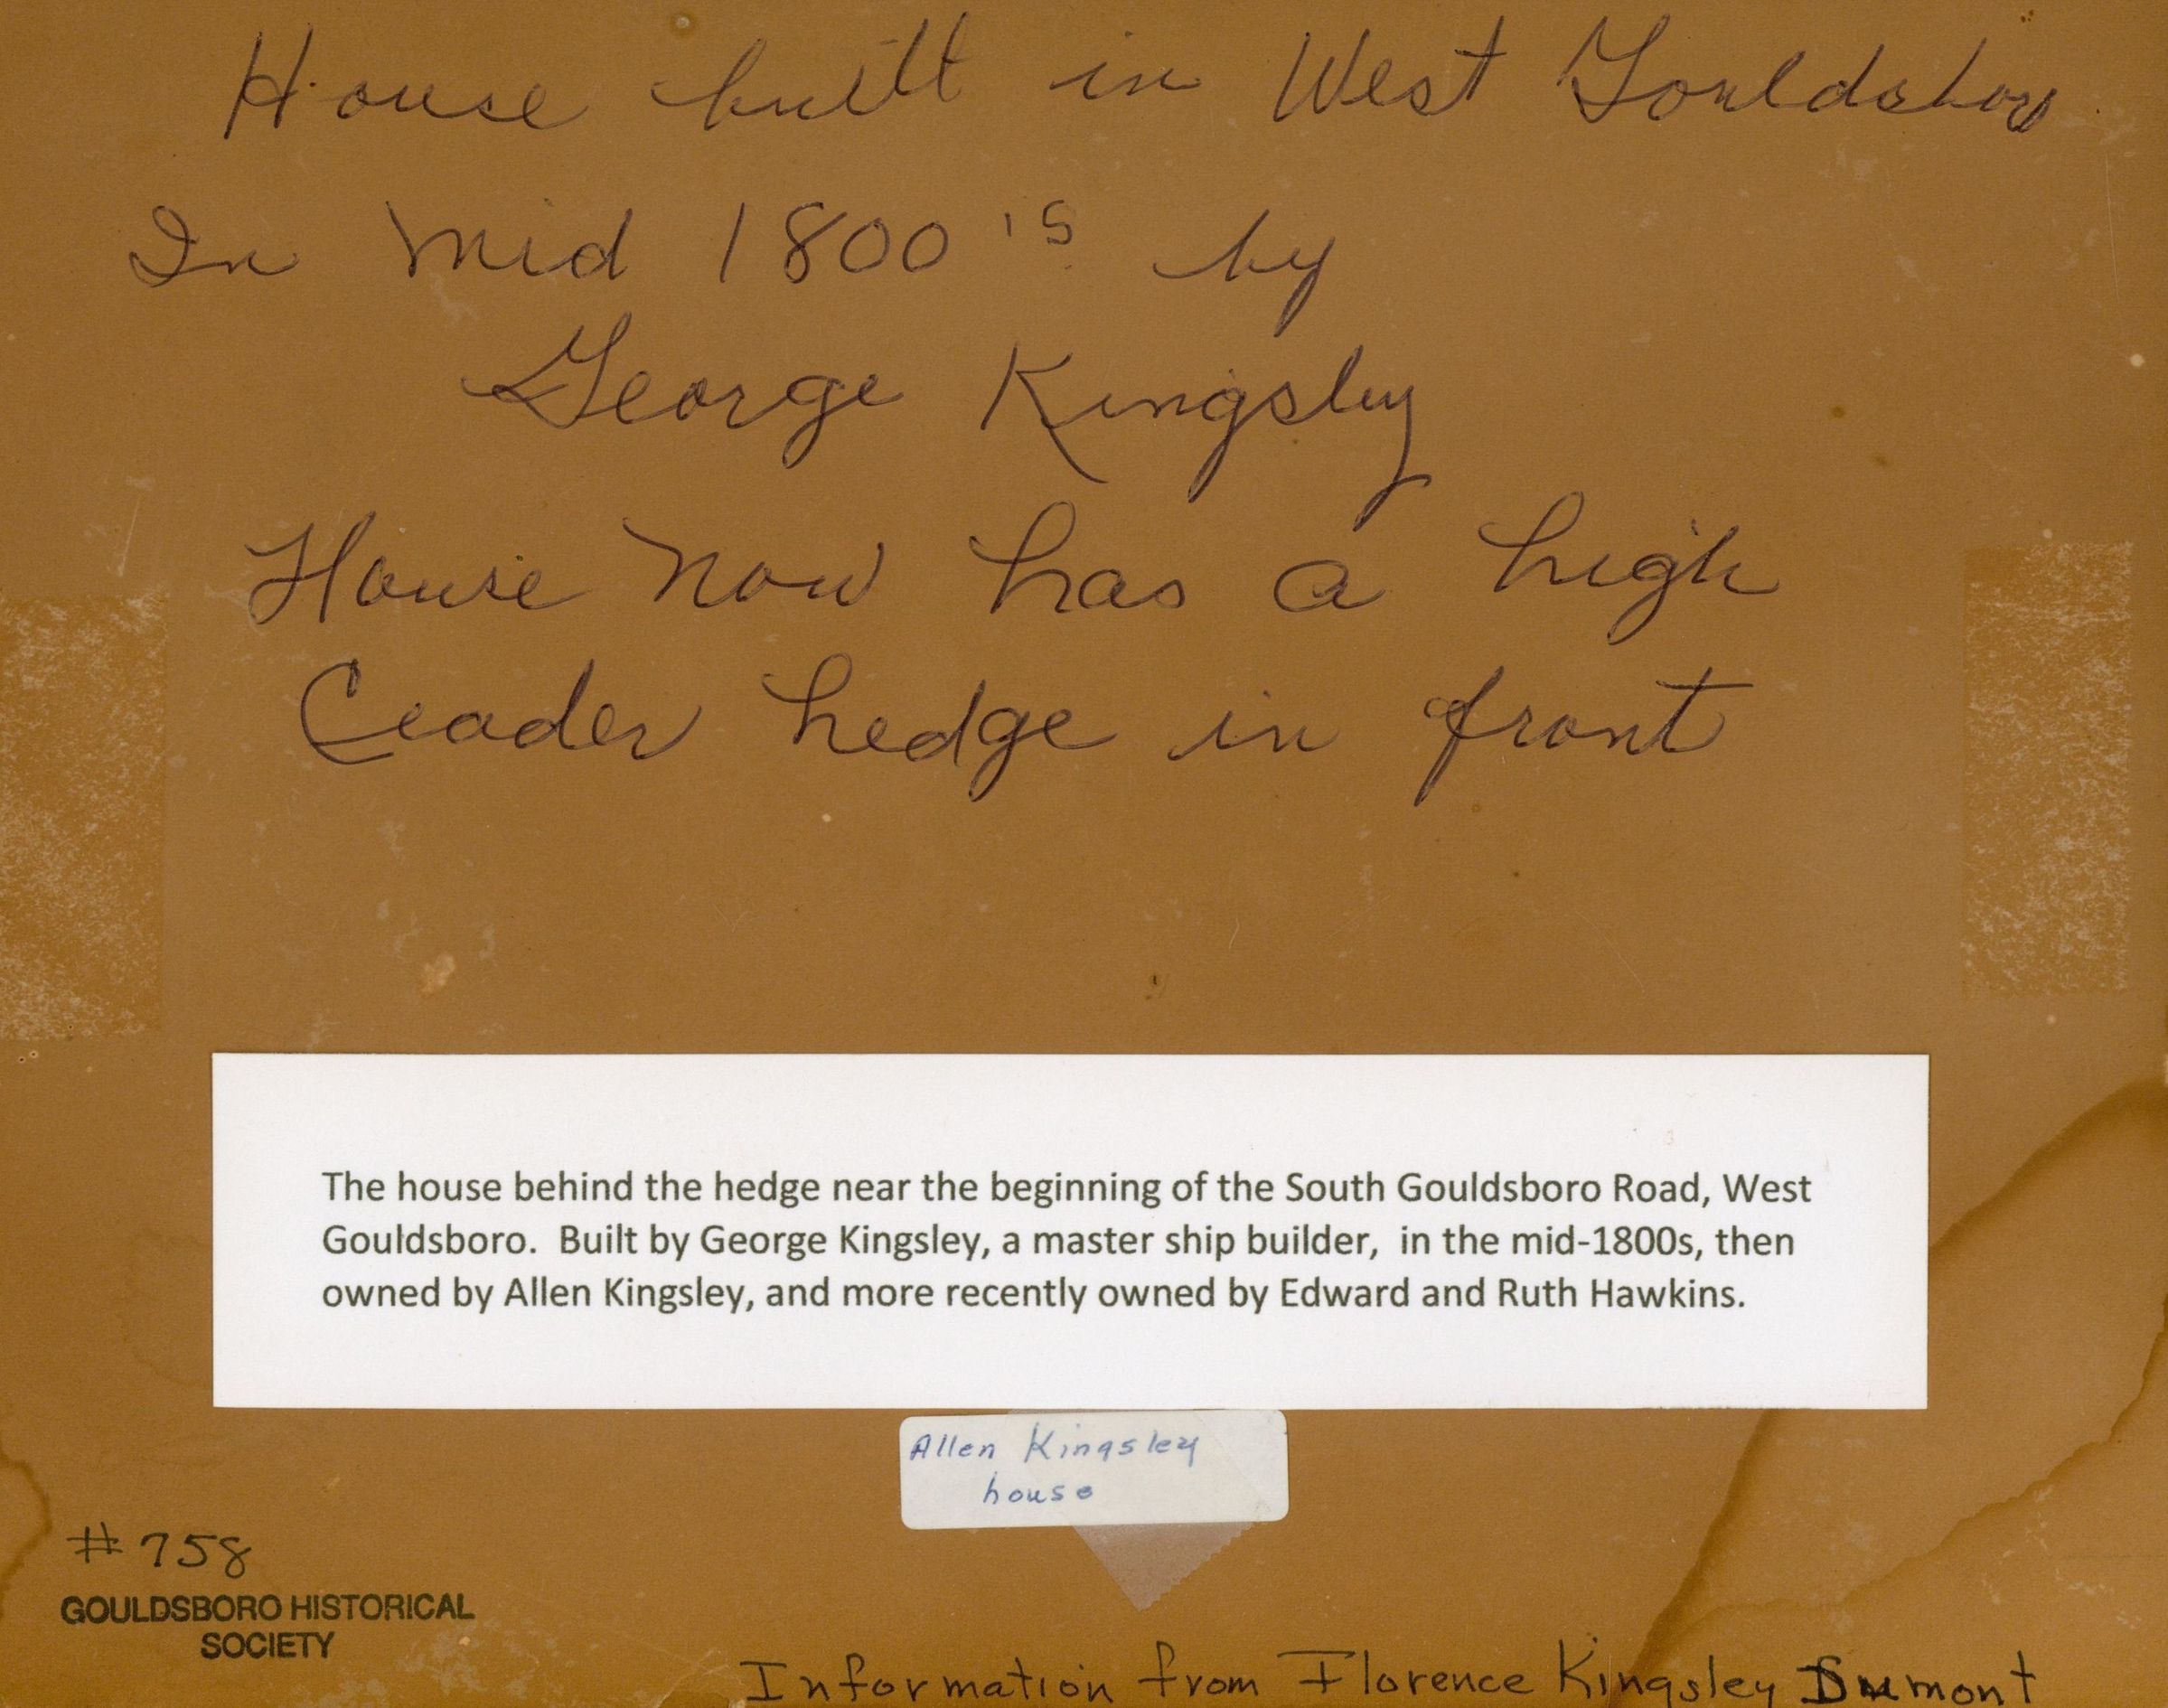 House built in West Gouldsboro
In mid 1800's by
George Kingsley
House now has a high
Ceader hedge in front
The house behind the hedge near the beginning of the South Gouldsboro Road, West
Gouldsboro.  Built by George Kingsley, a master ship builder,  in the mid-1800s, then
owned by Allen Kingsley, and more recently owned by Edward and Ruth Hawkins.
Allen Kingsley
house
#758
GOULDSBORO HISTORICAL
SOCIETY
Information from Florence Kingsley Dumont